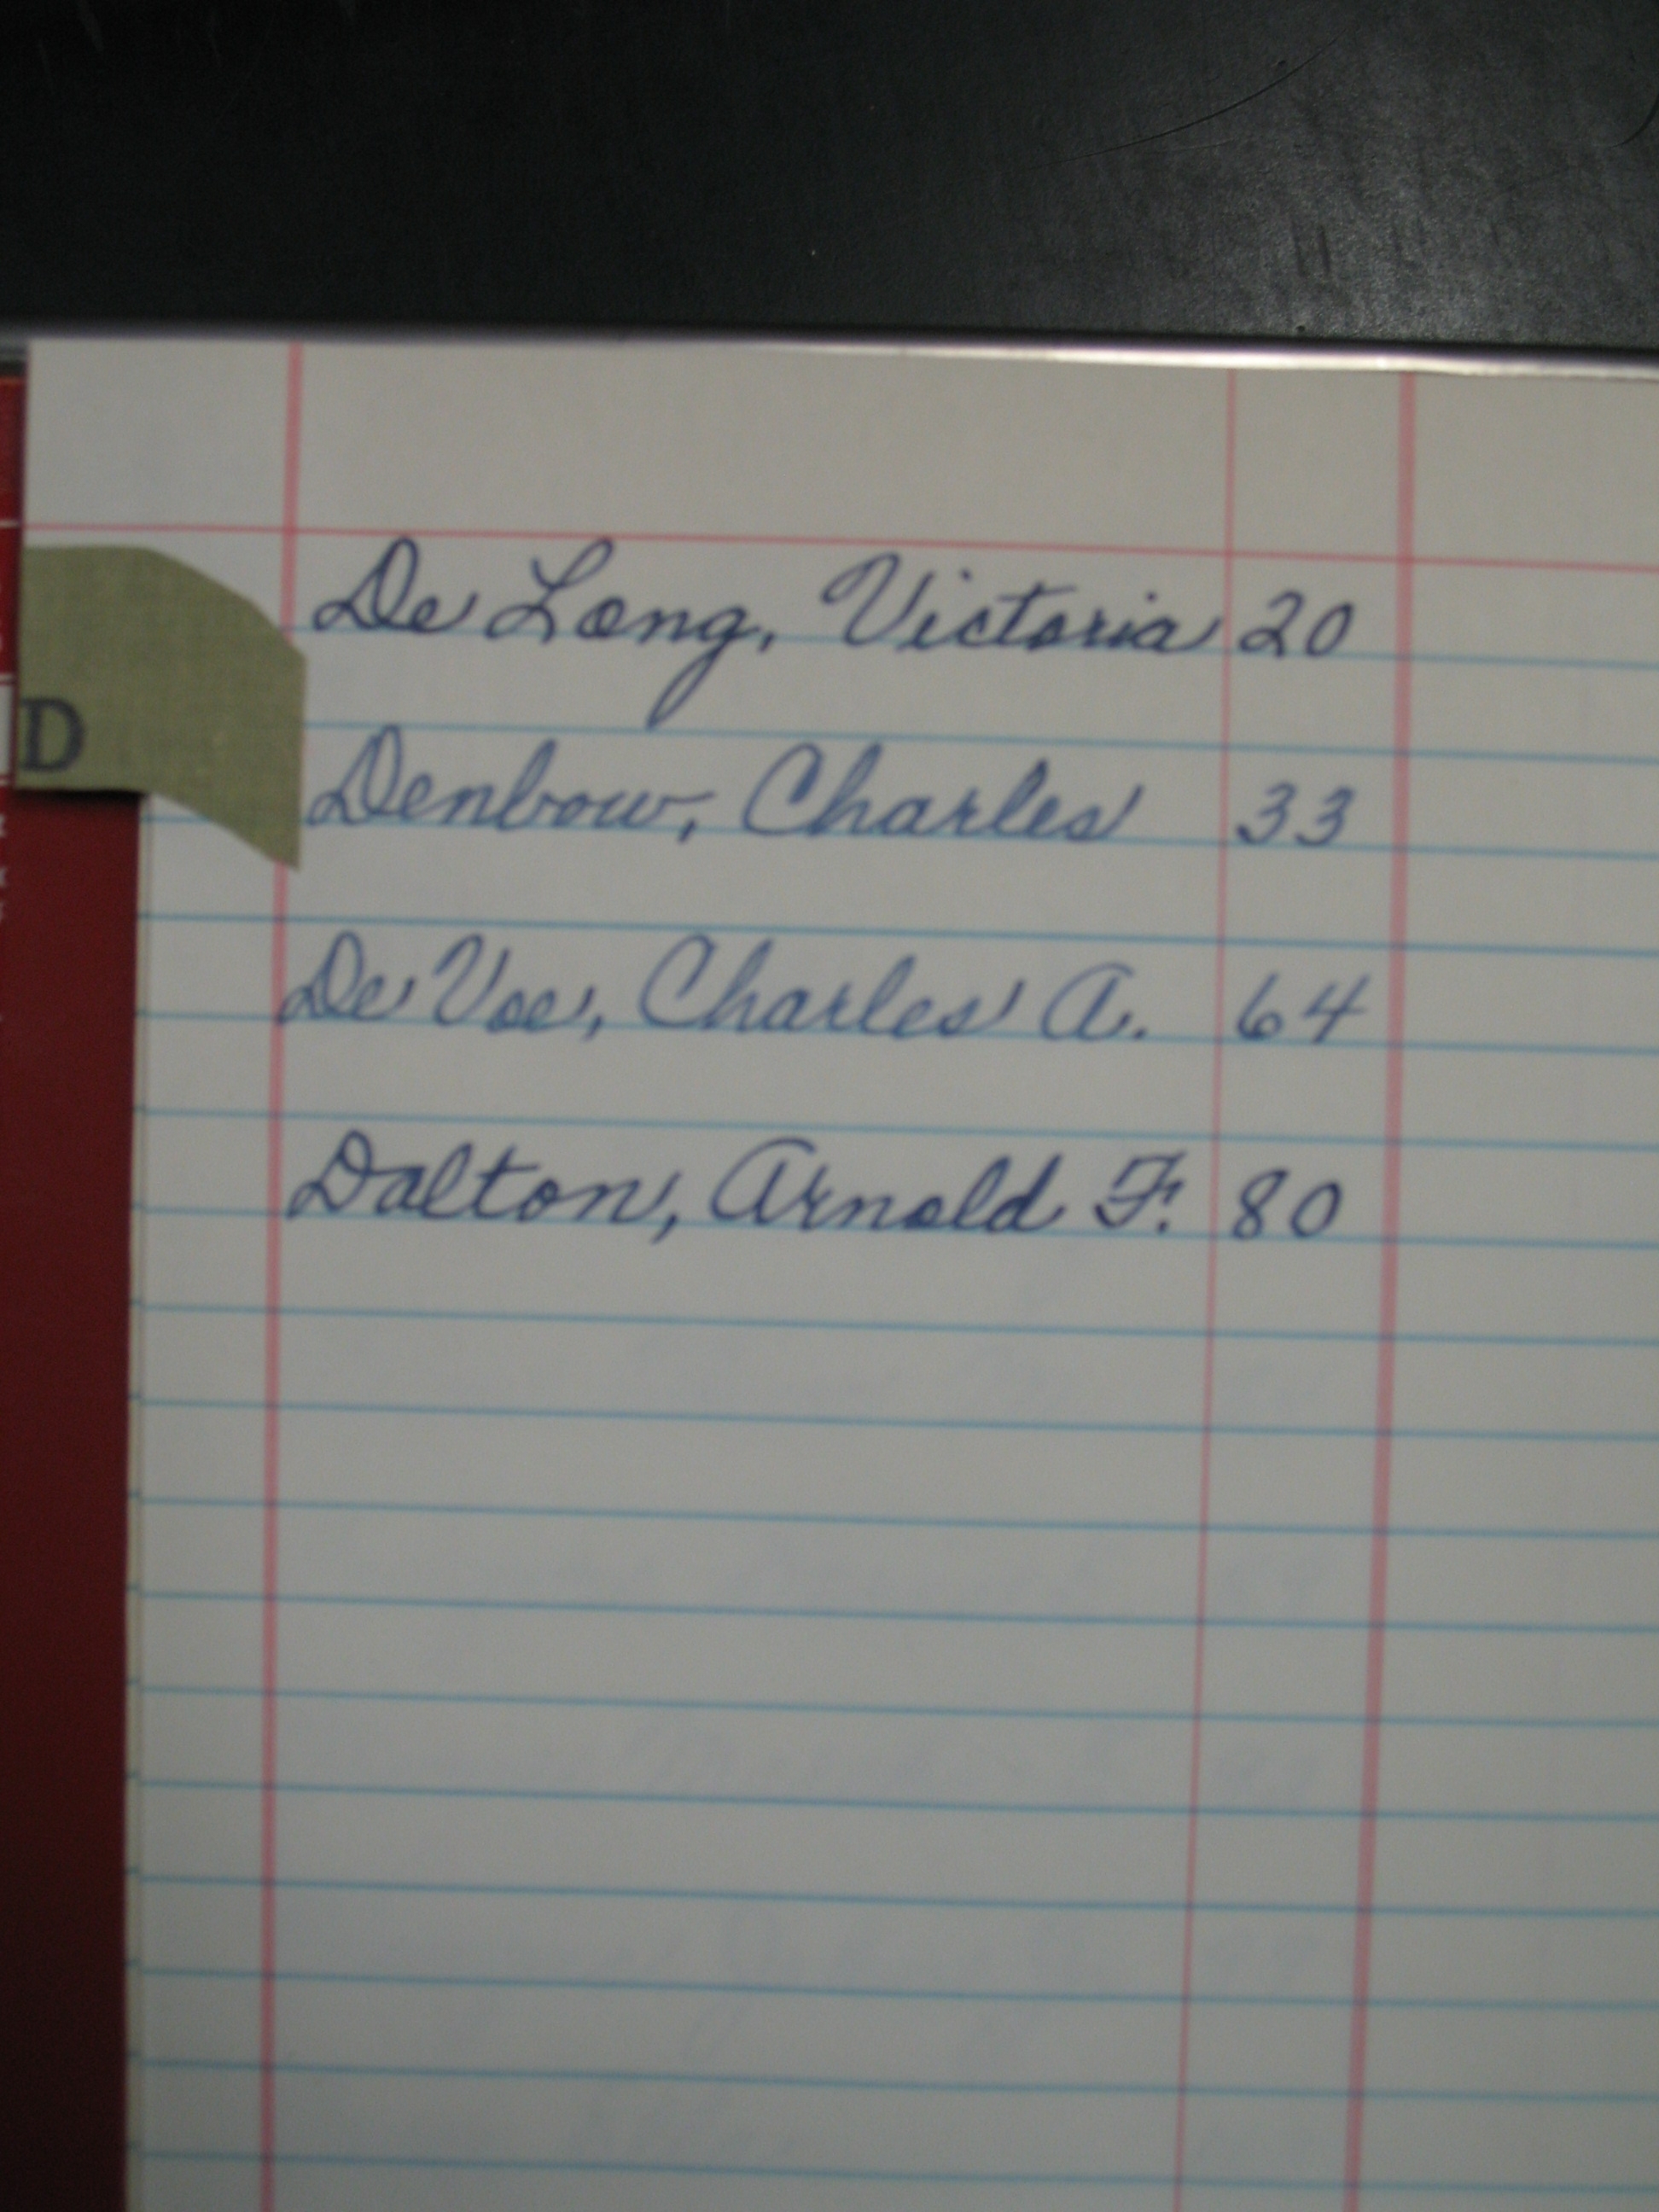 De Long, Victoria 20
D
Denbow, Charles 33
De Voe, Charles A. 64
Dalton, Arnold F. 80